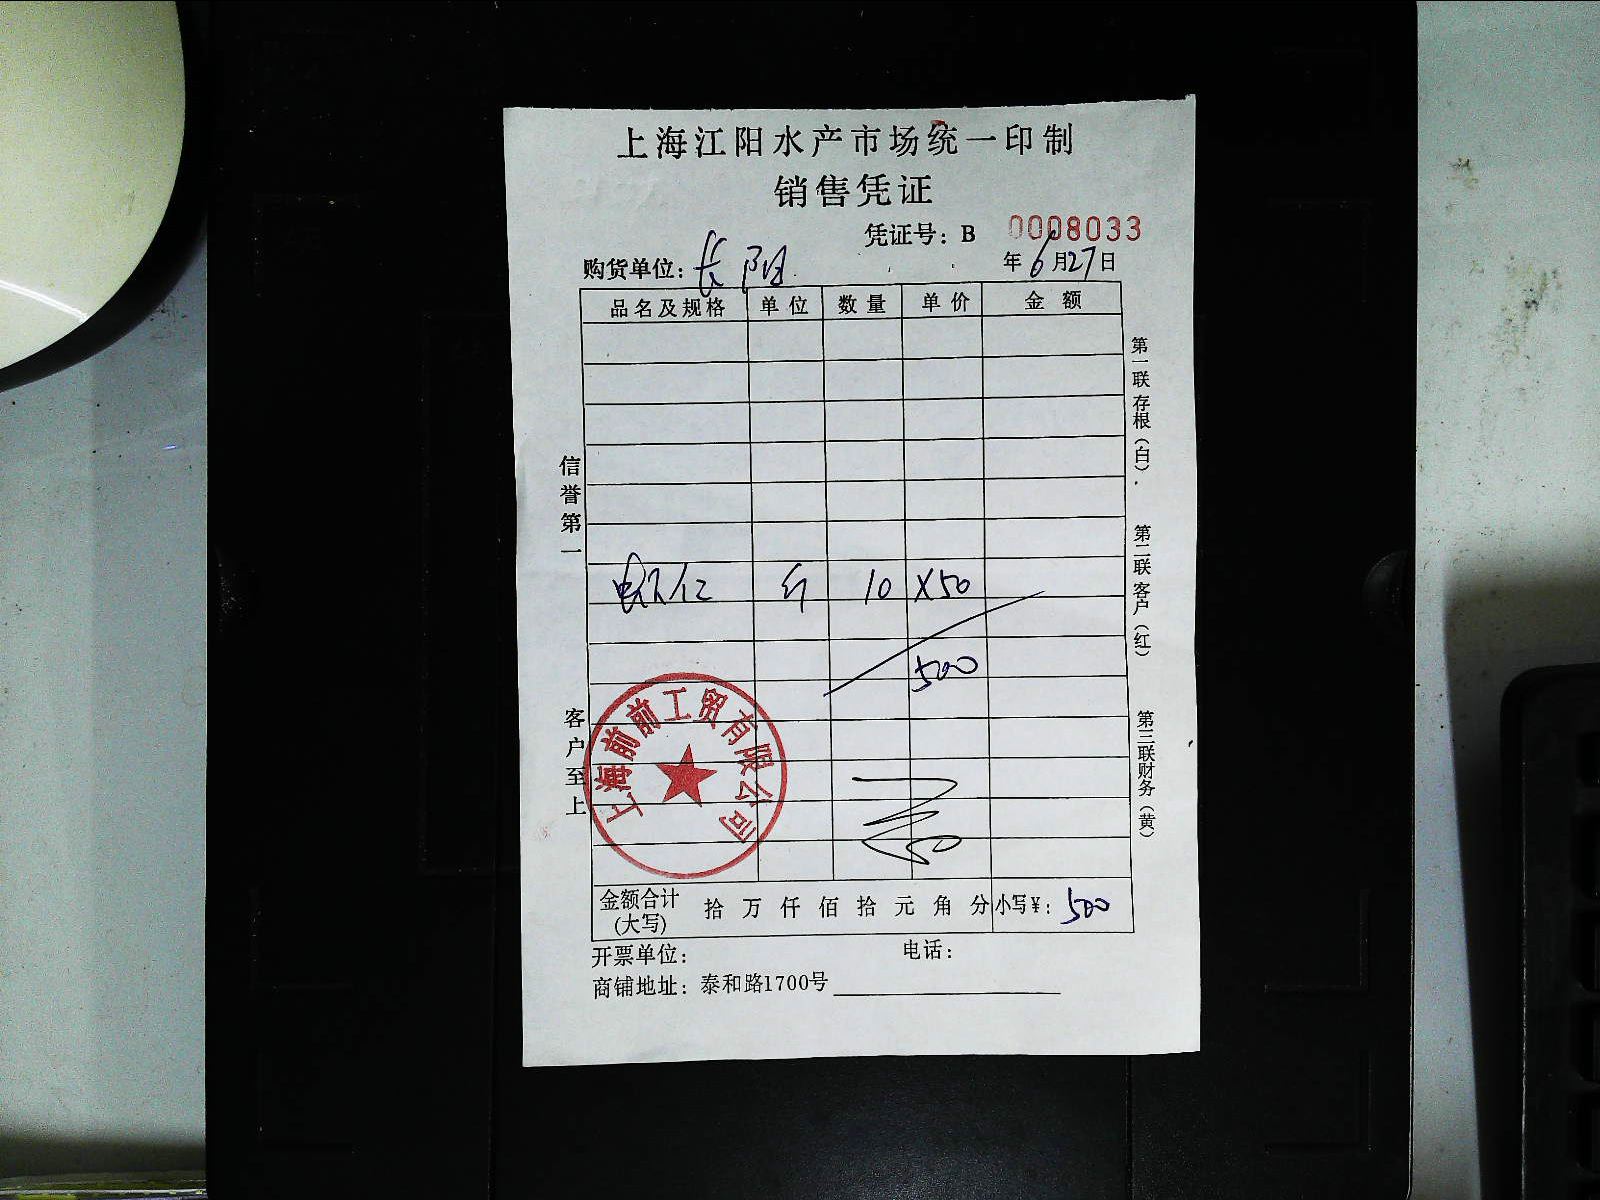 上海江阳水产市场统一印制
销售凭证
凭证号：B 0008033
购货单位：长阳 年6月27日
品名及规格 单位 数量 单价 金额
仁 斤 10 X50
500
信誉第一
客户至上
第一联存根（白）
第二联客户（红）
第三联财务（黄）
上海前前工贸有限公司
金额合计(大写) 拾万仟佰拾元角分 小写¥：500
开票单位： 电话：
商铺地址：泰和路1700号